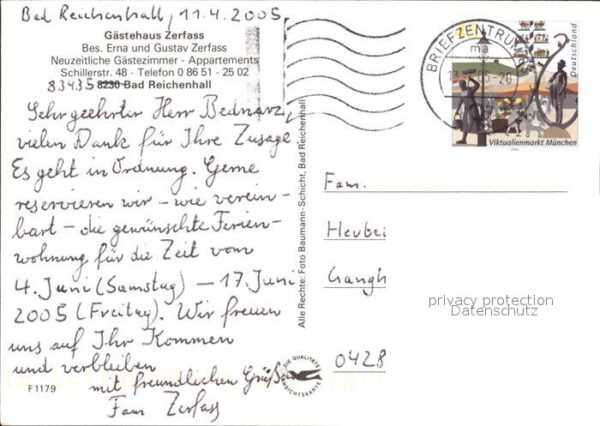 Bad Reichenhall, 11.4.2005
Gästehaus Zerfass
Bes. Erna und Gustav Zerfass
Neuzeitliche Gästezimmer - Appartements
Schillerstr. 48 - Telefon 0 86 51 - 25 02
83435 8230 Bad Reichenhall
Sehr geehrter Herr Bednarz,
vielen Dank für Ihre Zusage
Es geht in Ordnung. Gerne
reservieren wir - wie verein-
bart - die gewünschte Ferien-
wohnung für die Zeit vom
4. Juni (Samstag) - 17. Juni
2005 (Freitag). Wir freuen
uns auf Ihr Kommen
und verbleiben
mit freundlichen Grüßen
Fam Zerfass
F 1179
Alle Rechte: Foto Baumann-Schicht, Bad Reichenhall
DIE QUALITÄTS
ANSICHTSKARTE
BRIEFZENTRUM
ma
Deutschland
Viktualienmarkt München
Fam.
Heubei
Gangh
0428
privacy protection
Datenschutz